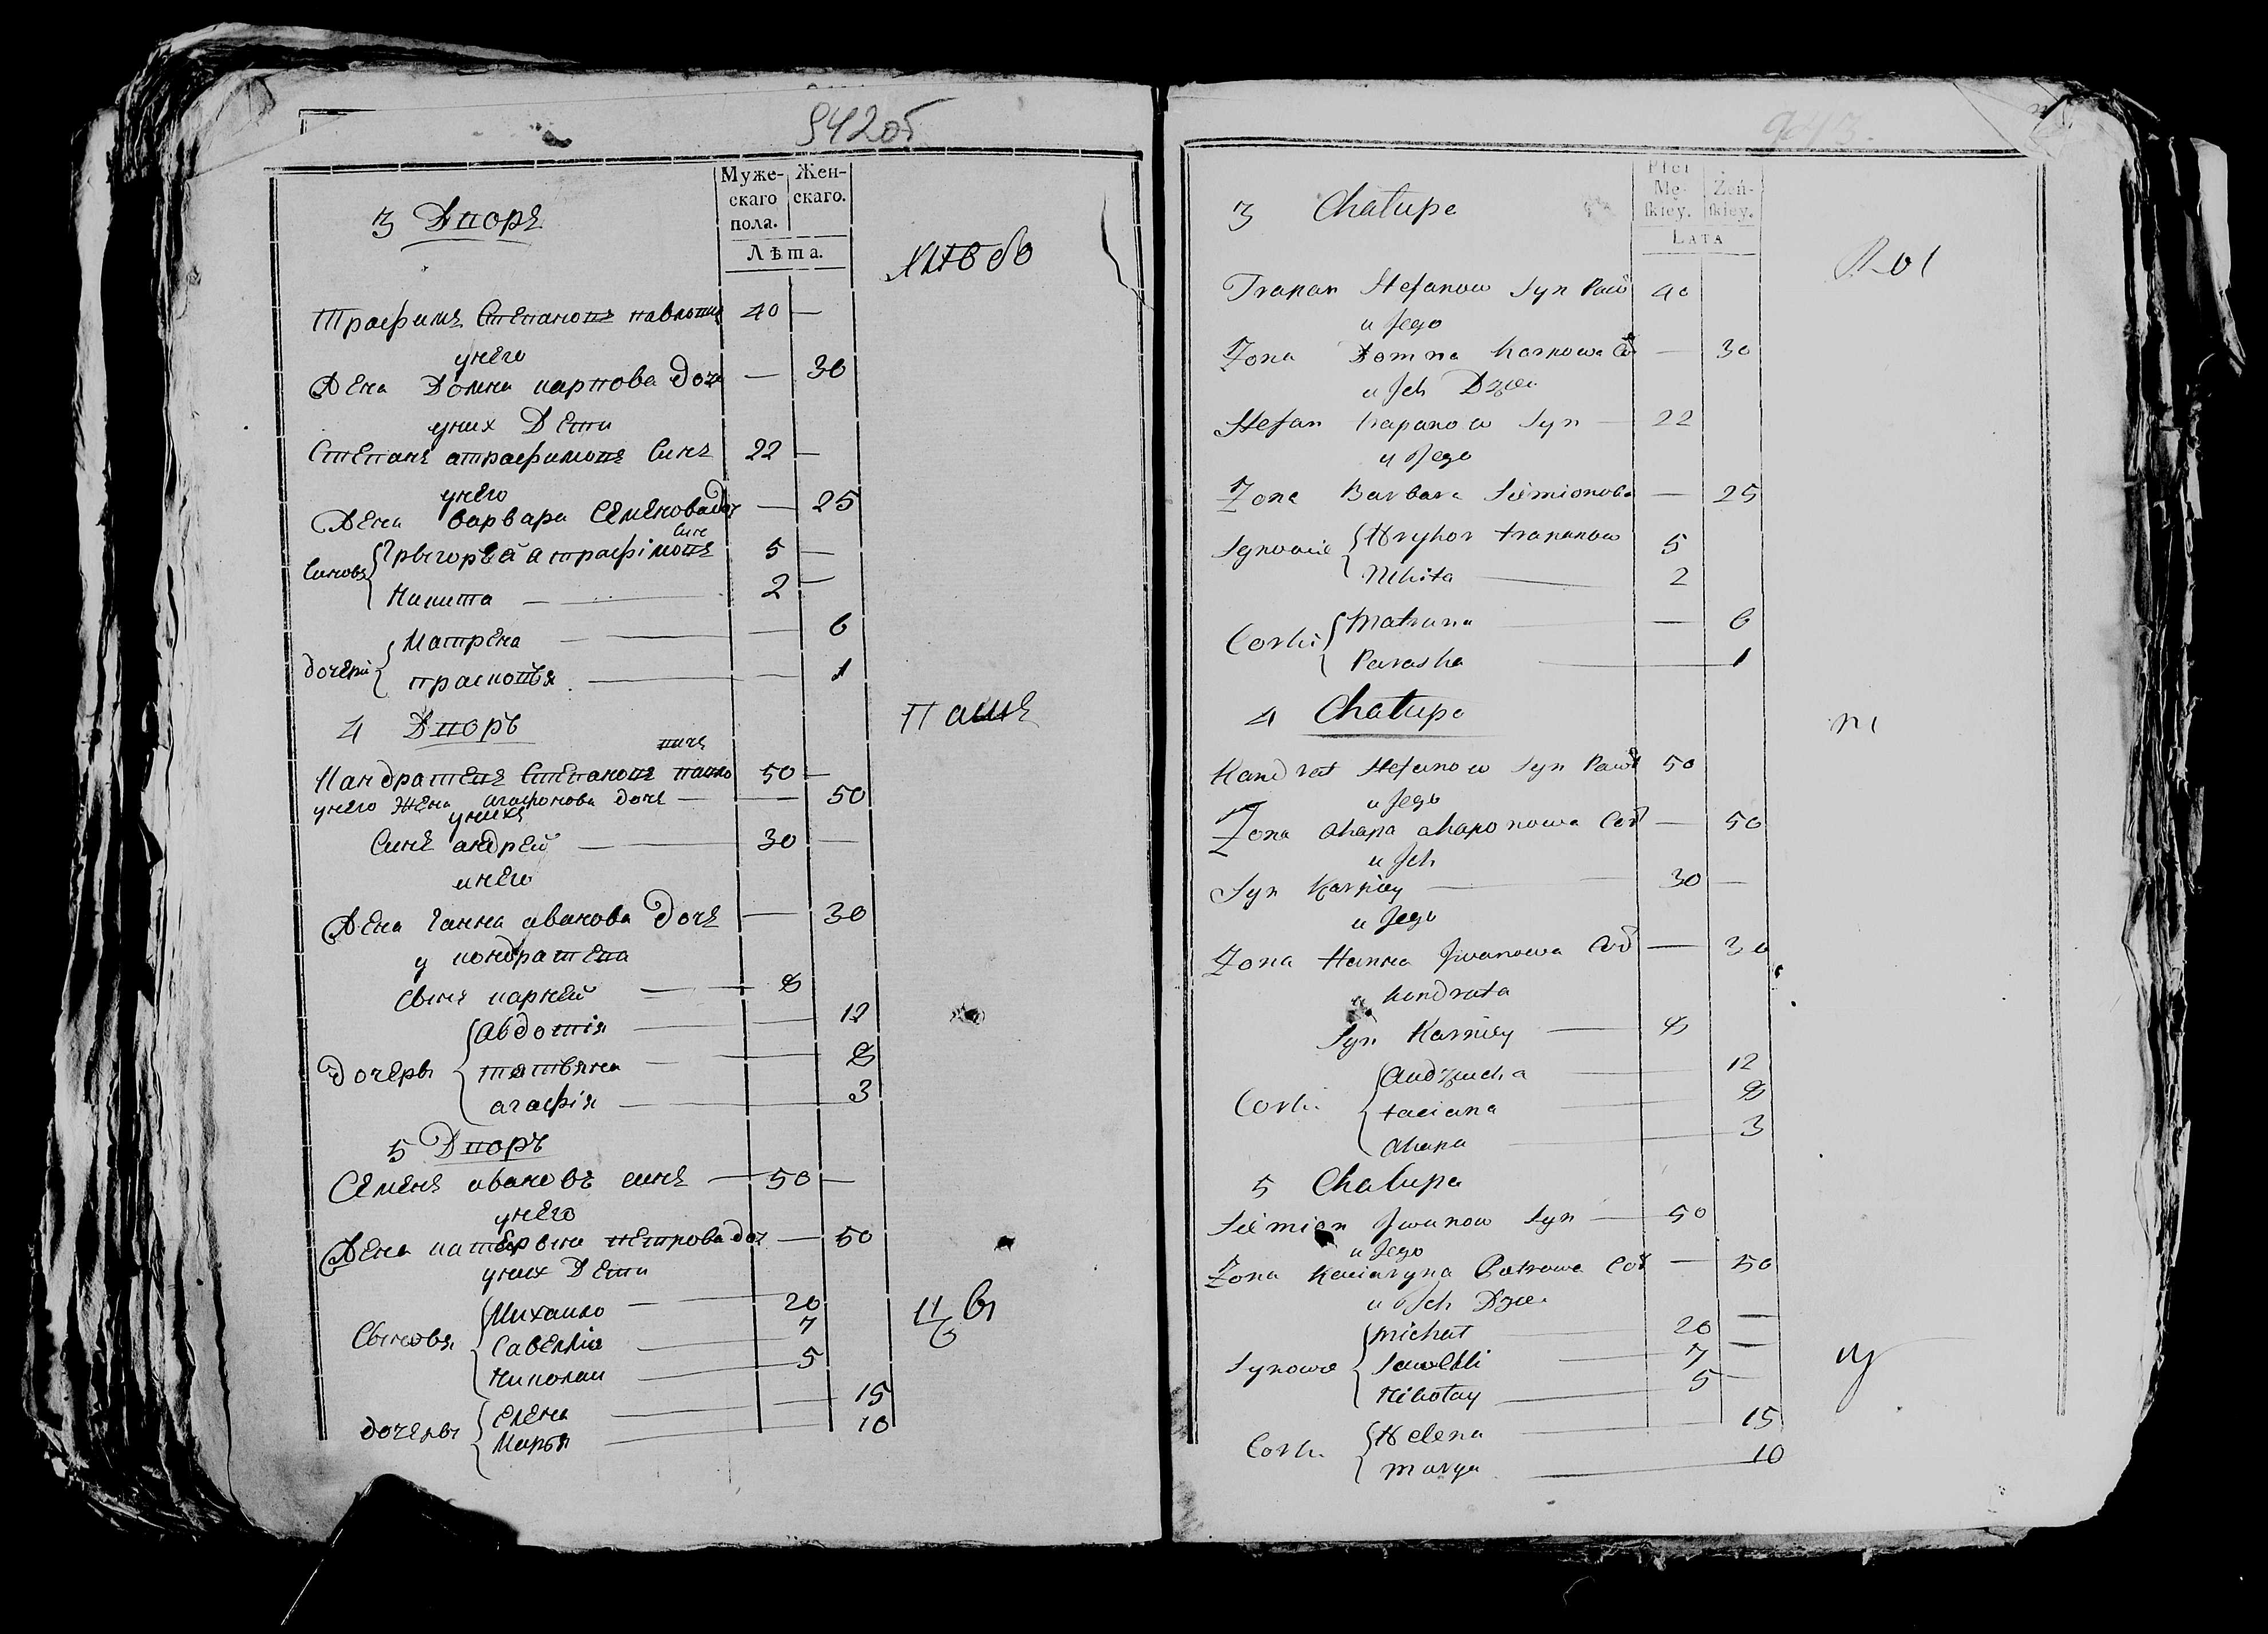 942об
Муже-
скаго
пола.
Жен-
скаго.
Лѣта.
3 Дворъ
Трафимъ Степановъ павлови 40 —
у него
Жена Домна карпова доч — 30
у них Дети
Степанъ атрафимовъ Синъ 22 —
у него
Жена варвара Семенова доч — 25
Синовя
Грыгорей атрафімовъ синъ 5 —
Никита — 2 —
дочери
Матрена — 6
прасковья — 1
Пашъ
4 Дворъ
Кандратей Степановъ павло вичъ 50 —
у него Жена агафонова дочъ — 50
у нихъ
Синъ андрей — 30 —
и него
Жена Ганна иванова дочъ — 30
у кондратея
Сынъ карней — 8
дочеры
Авдотія — 12
татьяна — 8
агафія — 3
5 Дворъ
Семенъ ивановъ синъ — 50 —
у него
Жена катерына петрова доч — 50
у них Дети
Сыновя
Михаило — 20
Савелие — 7
Николаи — 5
дочеры
елена — 15
Марья — 10
943.
Płci
Mę-
ſkiey.
Żeń-
ſkiey.
LATA
3 Chałupa
Trapan Stefanow Syn Paw 40
u Jego
Zona Domna Karpowa Co — 30
u Jch Dzieci
Stefan trapanow Syn — 22
u Jego
Zona Barbara Siemionowa — 25
Synowie
Hryhor trapanow 5
Nikita — 2
Corki
Matruna — 6
Paraska — 1
4 Chałupa
Kandrat Stefanow Syn Paw 50
u Jego
Zona ahapa ahaponowa Cor — 50
u Jch
Syn — 30 —
u Jego
Zona Hanna Jwanowa Cor — 30
u kondrata
Syn Karniey — 8
Corki
Audziucha — 12
taciana — 8
ahapa — 3
5 Chałupa
Siemion Jwanow Syn — 50
u Jego
Zona Kaciaryna Patrowa Cor — 50
u Jch Dzieci
Synowie
michał — 20 —
Sawelli — 7 —
Nikołay — 5 —
Corki
Helena — 15
marya — 10